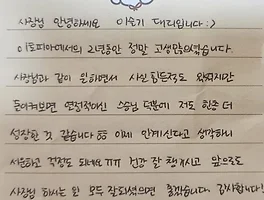 사장님 안녕하세요 이슬기 대리입니다 :)
이토피아에서의 2년동안 정말 고생많으셨습니다.
사장님과 같이 일하면서 사실 힘든적도 있었지만
돌이켜보면 열정적이신 사장님 덕분에 저도 한층 더
성장한 것 같습니다 이제 안계신다고 생각하니
서운하고 걱정도 되네요 ㄲㄲ 건강 잘 챙기시고 앞으로도
사장님 하시는 일 모두 잘되셨으면 좋겠습니다. 감사합니다!